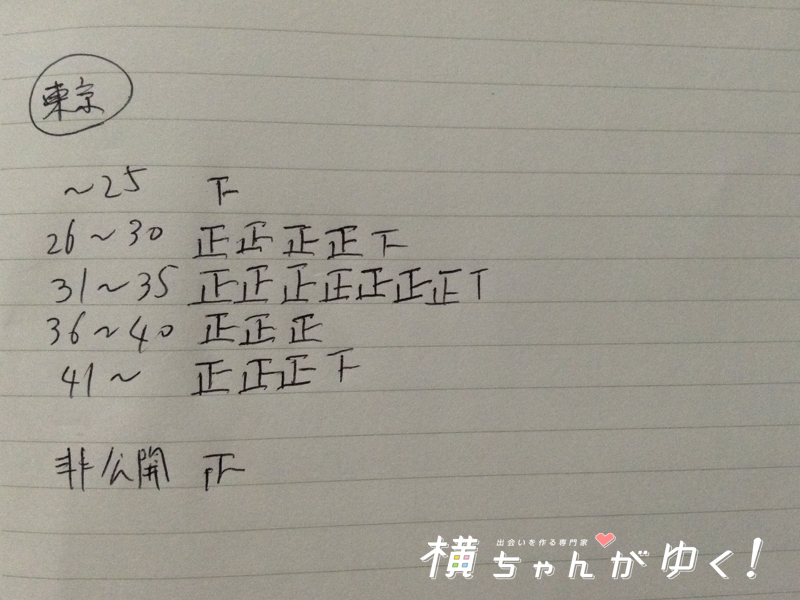 東京
～25 下
26～30 正正正正下
31～35 正正正正正正正丅
36～40 正正正
41～ 正正正下
非公開 正
出会いを作る専門家
横ちゃんがゆく!